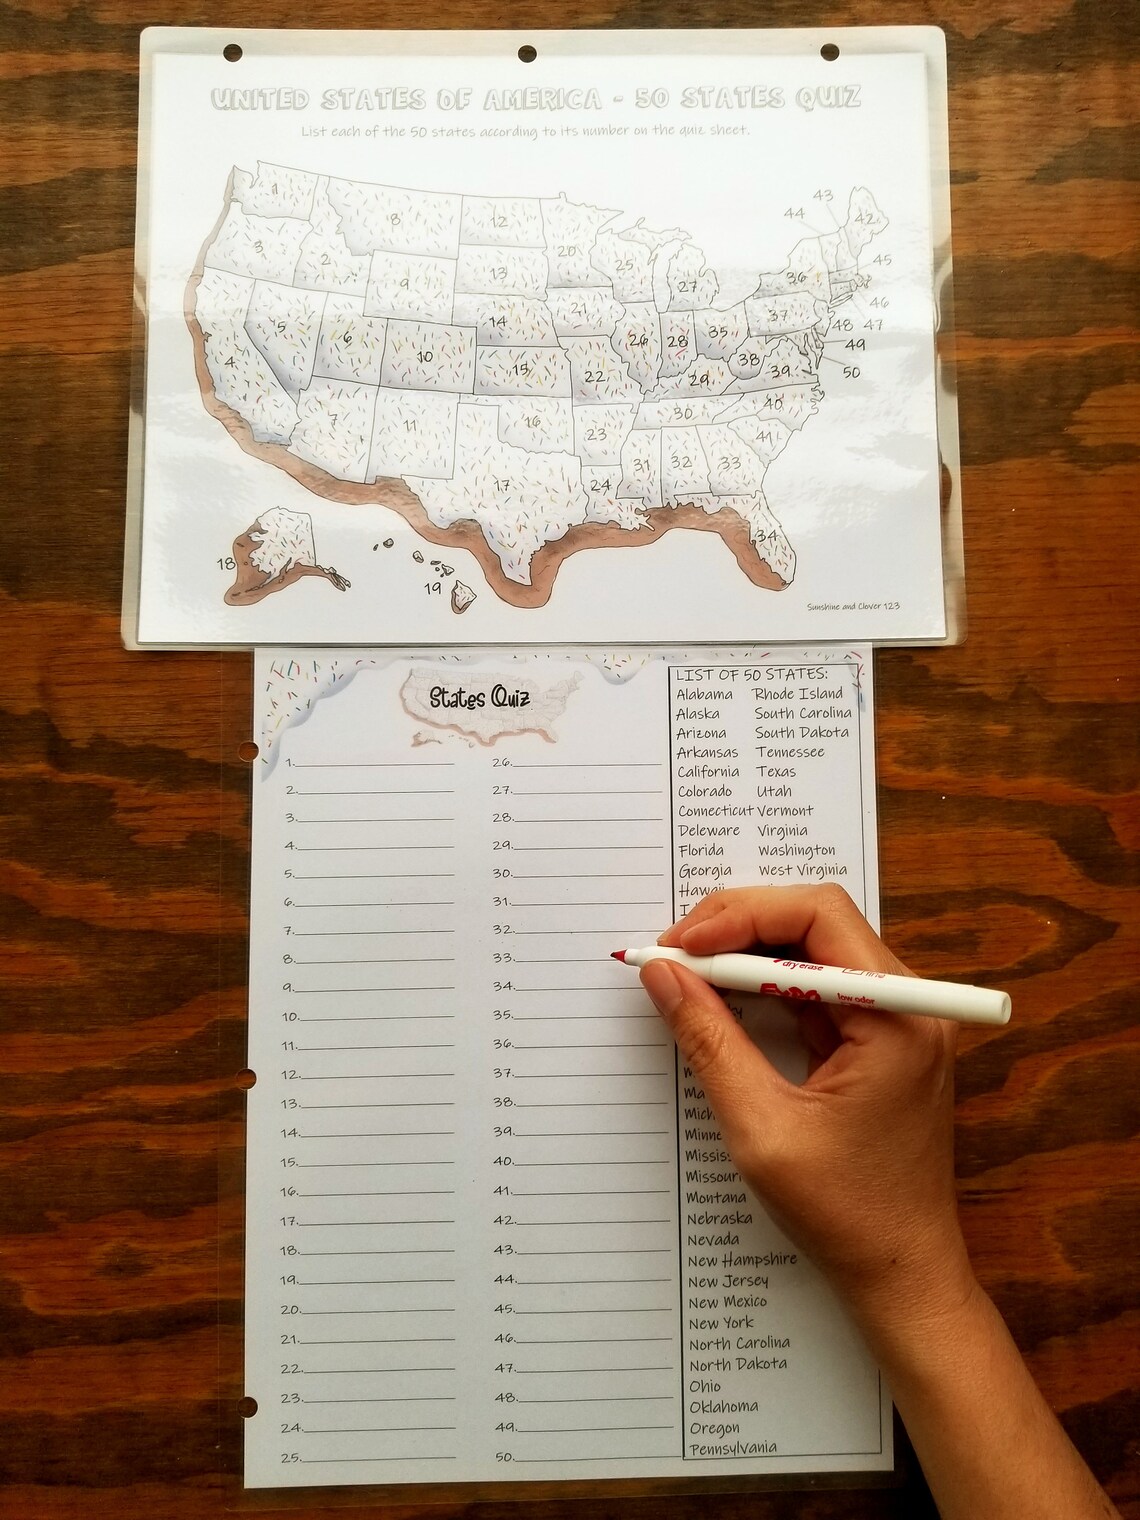 UNITED STATES OF AMERICA - 50 STATES QUIZ
List each of the 50 states according to its number on the quiz sheet.
1
2
3
4
5
6
7
8
9
10
11
12
13
14
15
16
17
18
19
20
21
22
23
24
25
26
27
28
29
30
31
32
33
34
35
36
37
38
39
40
41
42
43
44
45
46
47
48
49
50
Sunshine and Clover 123
States Quiz
1.
2.
3.
4.
5.
6.
7.
8.
9.
10.
11.
12.
13.
14.
15.
16.
17.
18.
19.
20.
21.
22.
23.
24.
25.
26.
27.
28.
29.
30.
31.
32.
33.
34.
35.
36.
37.
38.
39.
40.
41.
42.
43.
44.
45.
46.
47.
48.
49.
50.
LIST OF 50 STATES:
Alabama Rhode Island
Alaska South Carolina
Arizona South Dakota
Arkansas Tennessee
California Texas
Colorado Utah
Connecticut Vermont
Deleware Virginia
Florida Washington
Georgia West Virginia
Hawaii
Montana
Nebraska
Nevada
New Hampshire
New Jersey
New Mexico
New York
North Carolina
North Dakota
Ohio
Oklahoma
Oregon
Pennsylvania
dry erase
EXPO
low odor